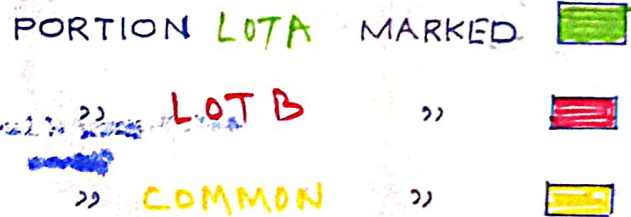 PORTION LOT A MARKED
" LOT B "
" COMMON "